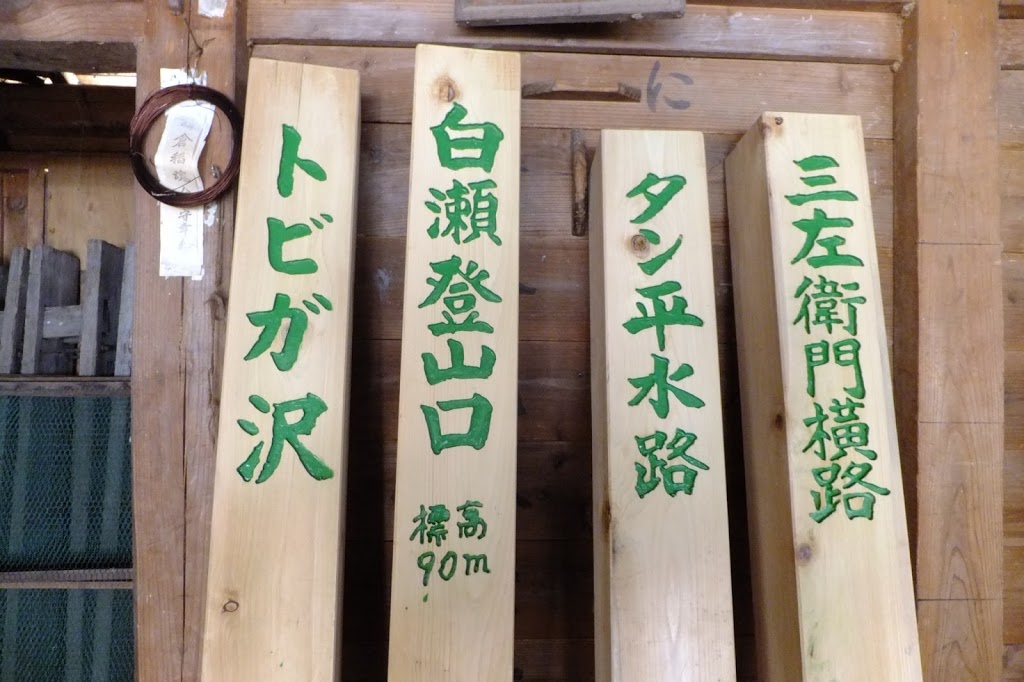 三左衛門横路
タン平水路
白瀬登山口
標高
90m
トビガ沢
に